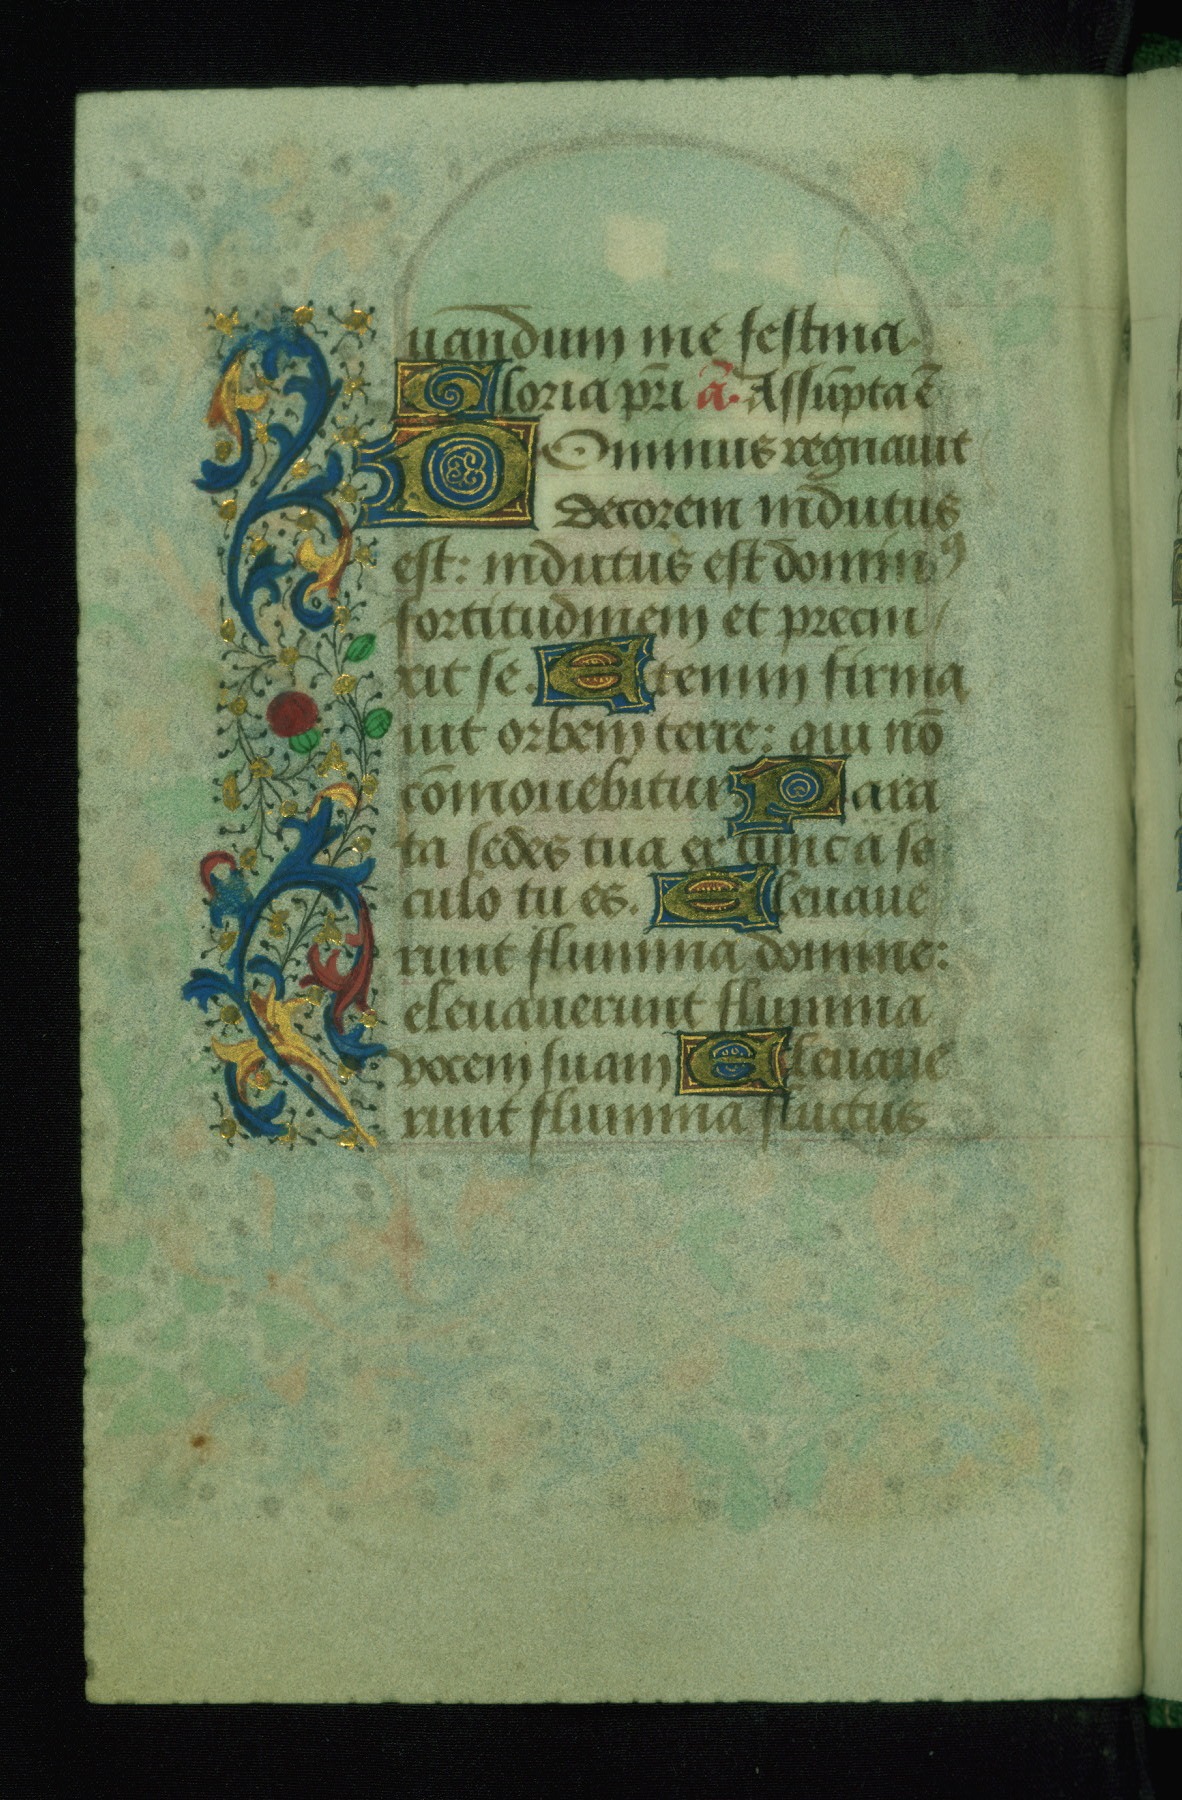 uandum me festina.
Gloria pr̄i ā. Assūpta ē
Dominus regnauit
decorem indutus
est: indutus est dominꝰ
fortitudinem et precin/
xit se. Etenim firma
uit orbem terre: qui nō
cōmouebitur Para
ta sedes tua ex tunc a se
culo tu es. Eleuaue
runt flumina domine:
eleuauerunt flumina
vocem suam Eleuaue
runt flumina fluctus